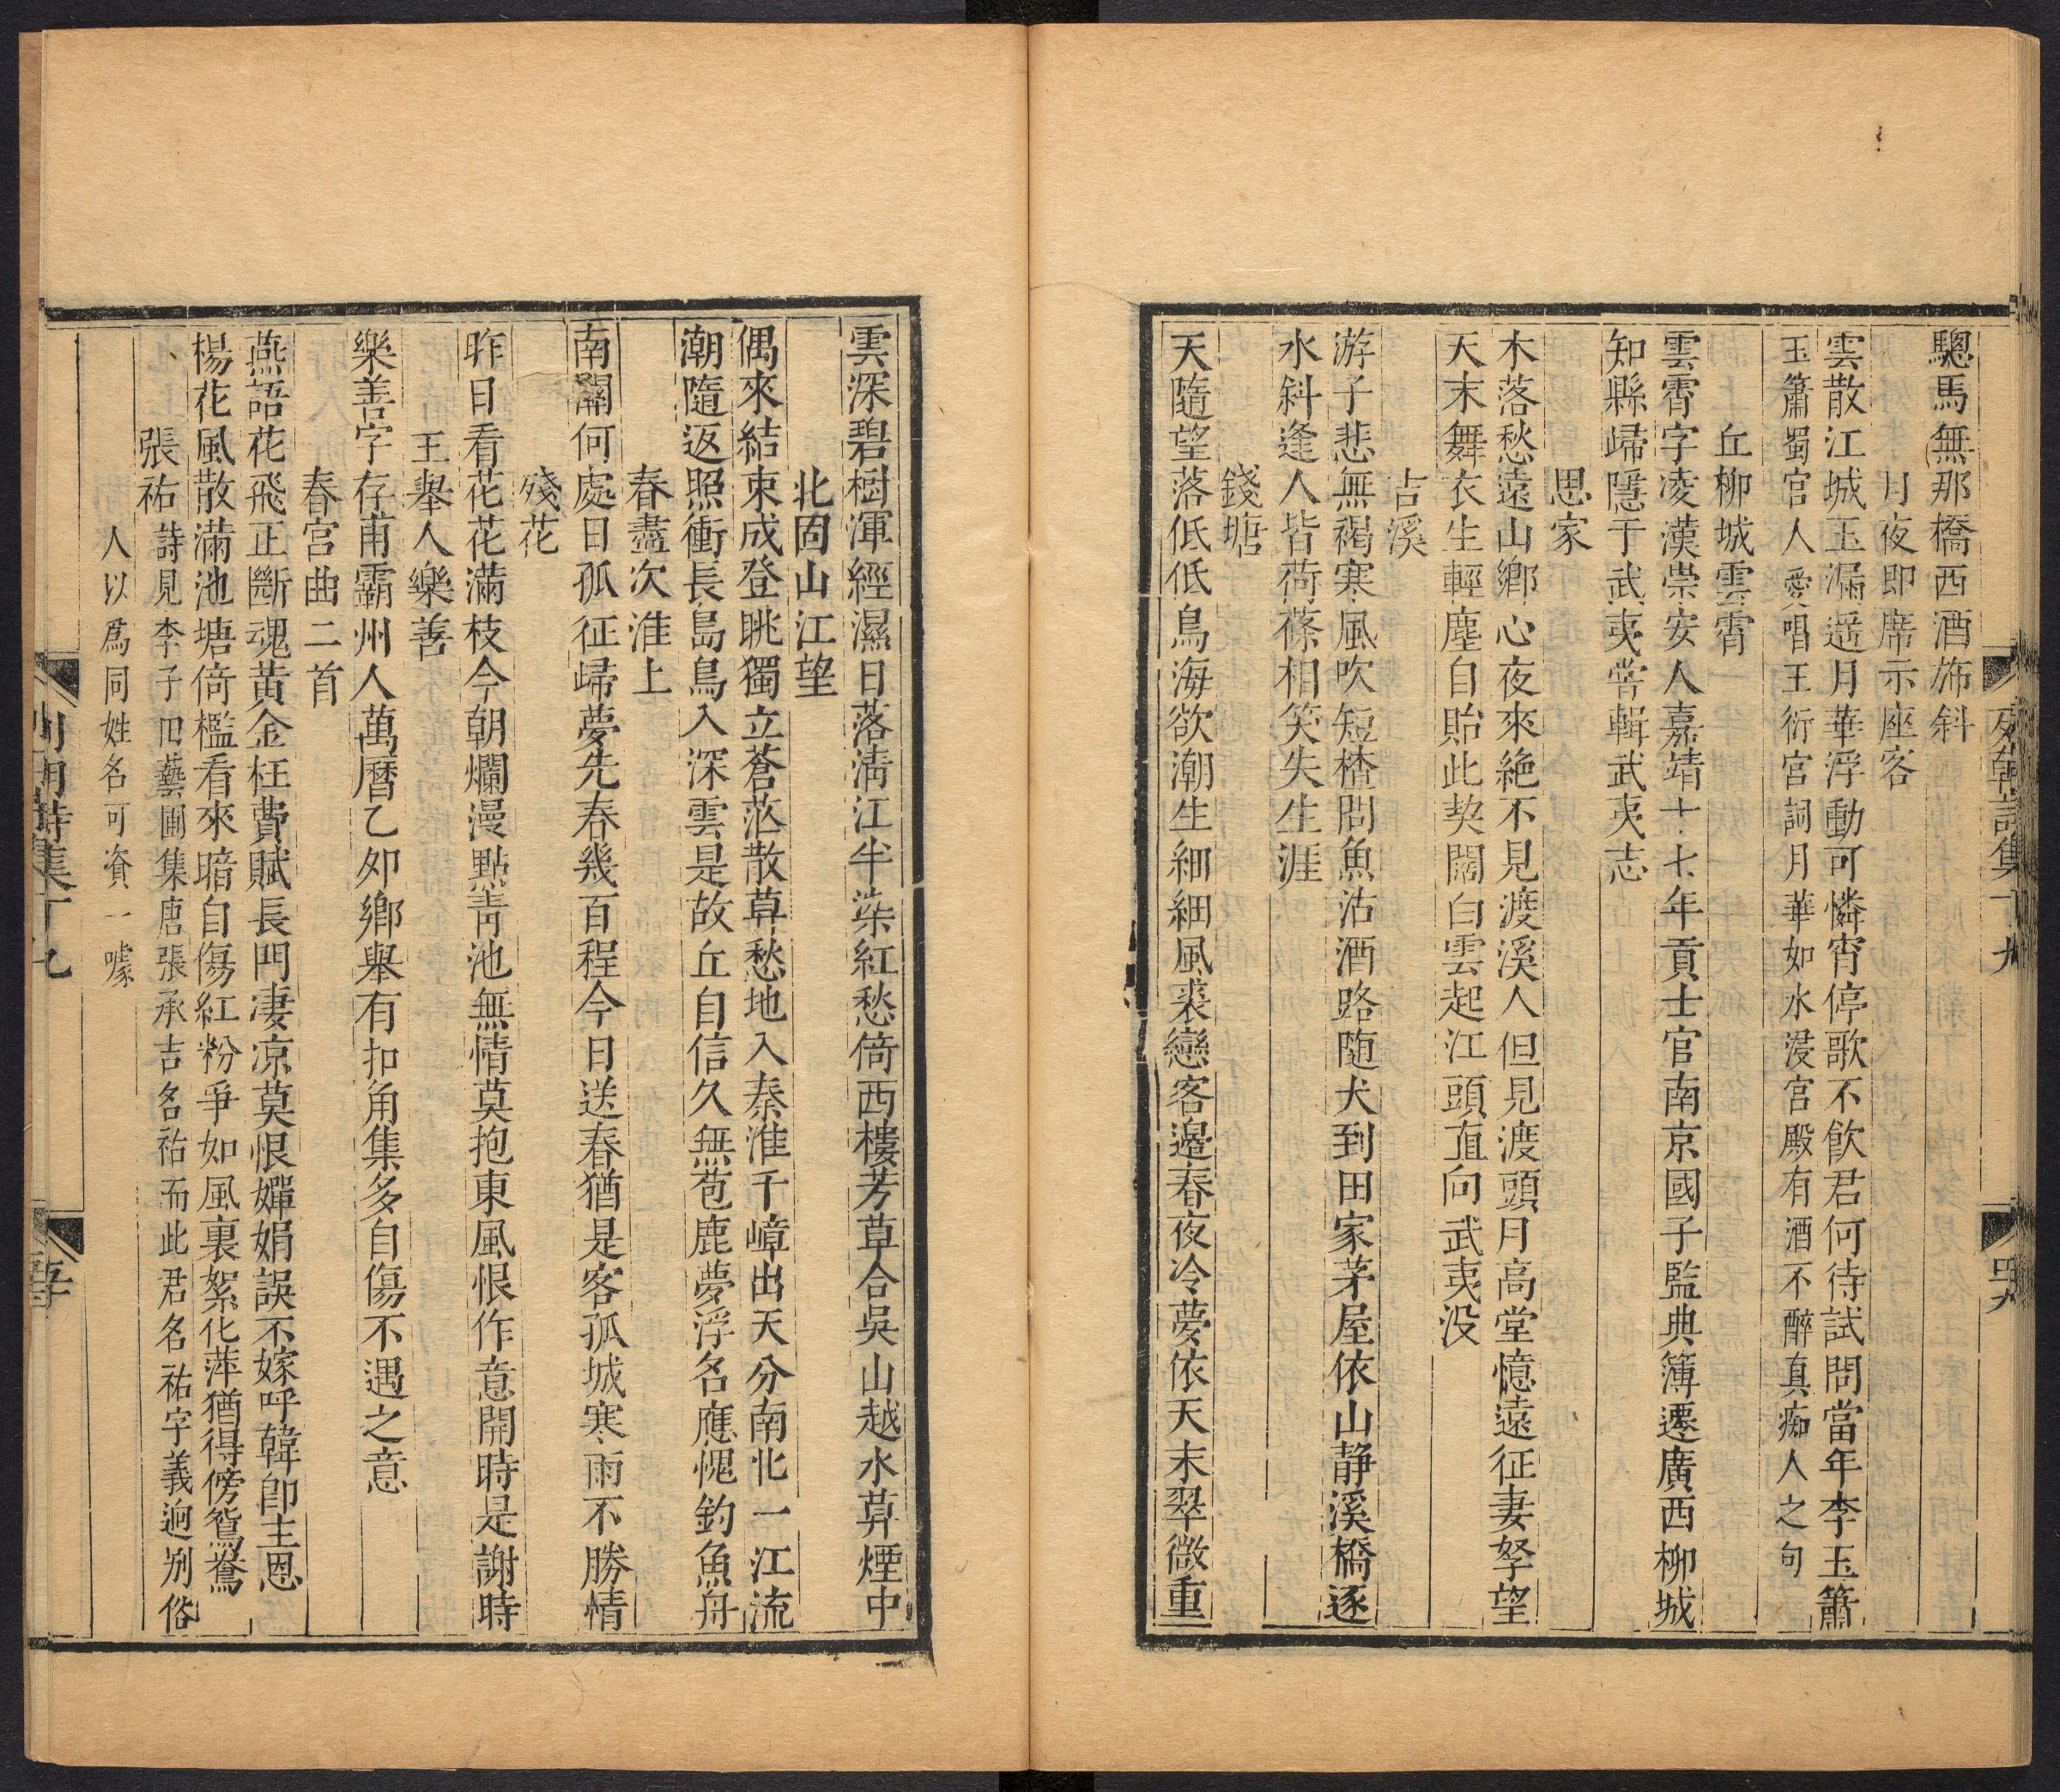 驄馬無那橋西酒斾斜
月夜即席示座客
雲散江城玉漏遥月華浮動可憐宵停歌不飲君何待試問當年李玉簫
玉簫蜀宮人愛唱王衍宮詞月華如水浸宮殿有酒不醉真痴人之句
丘柳城雲霄
雲霄字凌漢崇安人嘉靖十七年貢士官南京國子監典簿遷廣西柳城
知縣歸隱于武夷甞輯武夷志
思家
木落愁遠山鄉心夜來絶不見渡溪人但見渡頭月高堂憶遠征妻孥望
天末舞衣生輕塵自貽此契闊白雲起江頭直向武夷没
古溪
游子悲無褐寒風吹短楂問魚沽酒路随犬到田家茅屋依山静溪橋逐
水斜逢人皆荷蓧相笑失生涯
錢塘
天隨望落低低鳥海欲潮生細細風裘戀客邊春夜冷夢依天末翠微重
列朝詩集丁九
雲深碧樹渾經濕日落淸江半染紅愁倚西樓芳草合吳山越水草煙中
北固山江望
偶來結束成登眺獨立蒼茫散草愁地入秦淮千嶂出天分南北一江流
潮隨返照衝長島鳥入深雲是故丘自信久無苞鹿夢浮名應愧釣魚舟
春盡次淮上
南關何處日孤征歸夢先春幾百程今日送春猶是客孤城寒雨不勝情
殘花
昨日看花花滿枝今朝爛漫點靑池無情莫抱東風恨作意開時是謝時
王舉人樂善
樂善字存甫霸州人萬曆乙夘鄉舉有扣角集多自傷不遇之意
春宮曲二首
燕語花飛正斷魂黃金枉費賦長門凄凉莫恨嬋娟誤不嫁呼韓卽主恩
楊花風散滿池塘倚檻看來暗自傷紅粉爭如風裏絮化萍猶得傍鴛鴦
張祐詩見李子田藝圃集唐張承吉名祜而此君名祐字義逈别俗
人以爲同姓名可資一噱
列朝詩集丁九